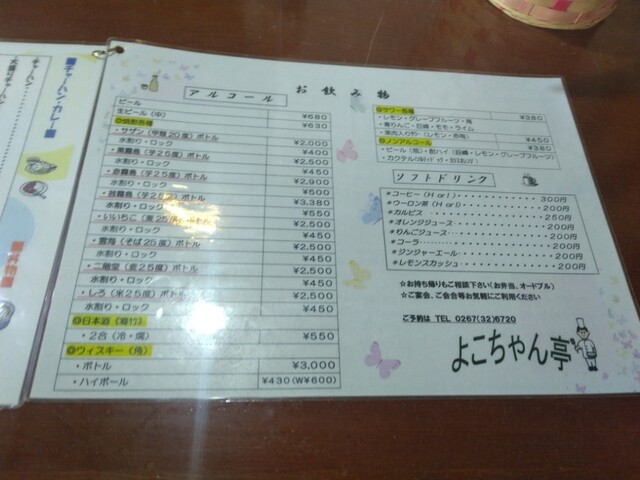 ■チャーハン・カレー■
チャーハン
大盛りチャーハン
お飲み物
アルコール
ビール ¥680
生ビール(中) ¥630
◎焼酎各種
・サザン(芋麹20度)ボトル ¥2,000
水割り・ロック ¥400
・黒霧島(芋25度)ボトル ¥2,500
水割り・ロック ¥450
・赤霧島(芋25度)ボトル ¥2,900
水割り・ロック ¥500
・茜霧島(芋25度)ボトル ¥3,380
水割り・ロック ¥550
・いいちこ(麦25度)ボトル ¥2,500
水割り・ロック ¥450
・雲海(そば25度)ボトル ¥2,500
水割り・ロック ¥450
・二階堂(麦25度)ボトル ¥2,500
水割り・ロック ¥450
・しろ(米25度)ボトル ¥2,500
水割り・ロック ¥450
◎日本酒
・2合(冷・燗) ¥550
◎ウィスキー(角)
・ボトル ¥3,000
・ハイボール ¥430(W¥600)
◎サワー各種 ¥380
・レモン・グレープフルーツ・梅
・青りんご・巨峰・モモ・ライム
・果肉入りサワー(レモン・赤梅) ¥450
◎ノンアルコール ¥380
・ビール(瓶)・酎ハイ(巨峰・レモン・グレープフルーツ)
ソフトドリンク
*コーヒー(Hor I) 300円
*ウーロン茶(Hor I) 200円
*カルピス 250円
*オレンジジュース 200円
*りんごジュース 200円
*コーラ 200円
*ジンジャーエール 200円
*レモンスカッシュ 200円
☆お持ち帰りもご相談下さい(お弁当、オードブル)
☆ご宴会、ご会合等お気軽にご利用ください
ご予約は TEL 0267(32)6720
よこちゃん亭